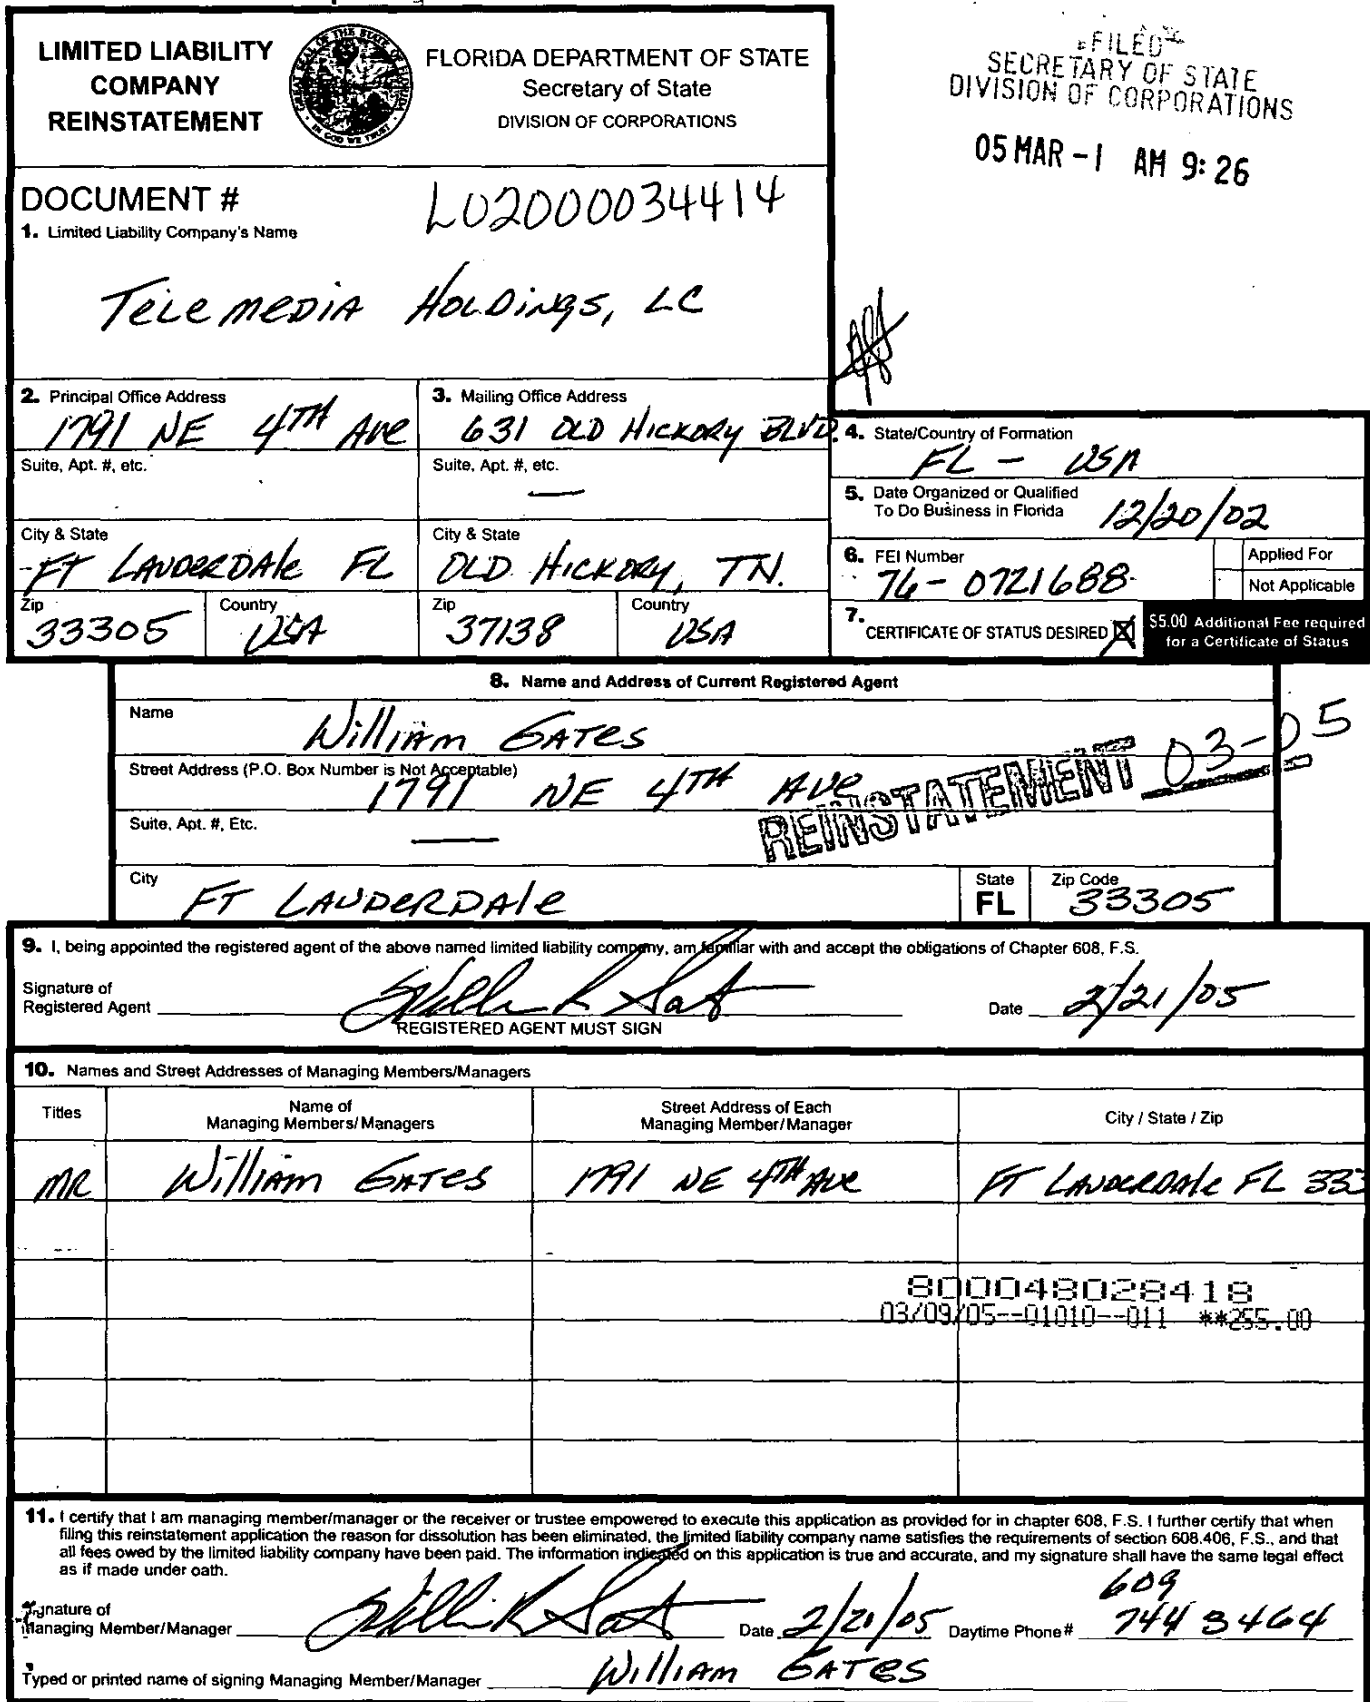 LIMITED LIABILITY COMPANY REINSTATEMENT
FLORIDA DEPARTMENT OF STATE
Secretary of State
DIVISION OF CORPORATIONS
FILED
SECRETARY OF STATE
DIVISION OF CORPORATIONS
05 MAR -1 AM 9:26
DOCUMENT # L02000034414
1. Limited Liability Company's Name
Telemedia Holdings, LC
2. Principal Office Address
1791 NE 4TH Ave
3. Mailing Office Address
631 OLD HICKORY BLVD.
Suite, Apt. #, etc.
Suite, Apt. #, etc.
—
City & State
FT LAUDERDALE FL
City & State
OLD HICKORY, TN.
Zip
33305
Country
USA
Zip
37138
Country
USA
4. State/Country of Formation
FL - USA
5. Date Organized or Qualified
To Do Business in Florida
12/20/02
6. FEI Number
76-0721688
Applied For
Not Applicable
7. CERTIFICATE OF STATUS DESIRED X
$5.00 Additional Fee required
for a Certificate of Status
8. Name and Address of Current Registered Agent
Name
William Gates
Street Address (P.O. Box Number is Not Acceptable)
1791 NE 4TH Ave
REINSTATEMENT 03-05
Suite, Apt. #, Etc.
—
City
FT LAUDERDALE
State
FL
Zip Code
33305
9. I, being appointed the registered agent of the above named limited liability company, am familiar with and accept the obligations of Chapter 608, F.S.
Signature of
Registered Agent
REGISTERED AGENT MUST SIGN
Date 2/21/05
10. Names and Street Addresses of Managing Members/Managers
Titles
Name of
Managing Members/Managers
Street Address of Each
Managing Member/Manager
City / State / Zip
MR William Gates 1791 NE 4TH Ave FT LAUDERDALE FL 333
800048028418
03/09/05--01010--011 **255.00
11. I certify that I am managing member/manager or the receiver or trustee empowered to execute this application as provided for in chapter 608, F.S. I further certify that when
filing this reinstatement application the reason for dissolution has been eliminated, the limited liability company name satisfies the requirements of section 608.406, F.S., and that
all fees owed by the limited liability company have been paid. The information indicated on this application is true and accurate, and my signature shall have the same legal effect
as if made under oath.
Signature of
Managing Member/Manager
Date 2/21/05
Daytime Phone # 609
744 3464
Typed or printed name of signing Managing Member/Manager William Gates